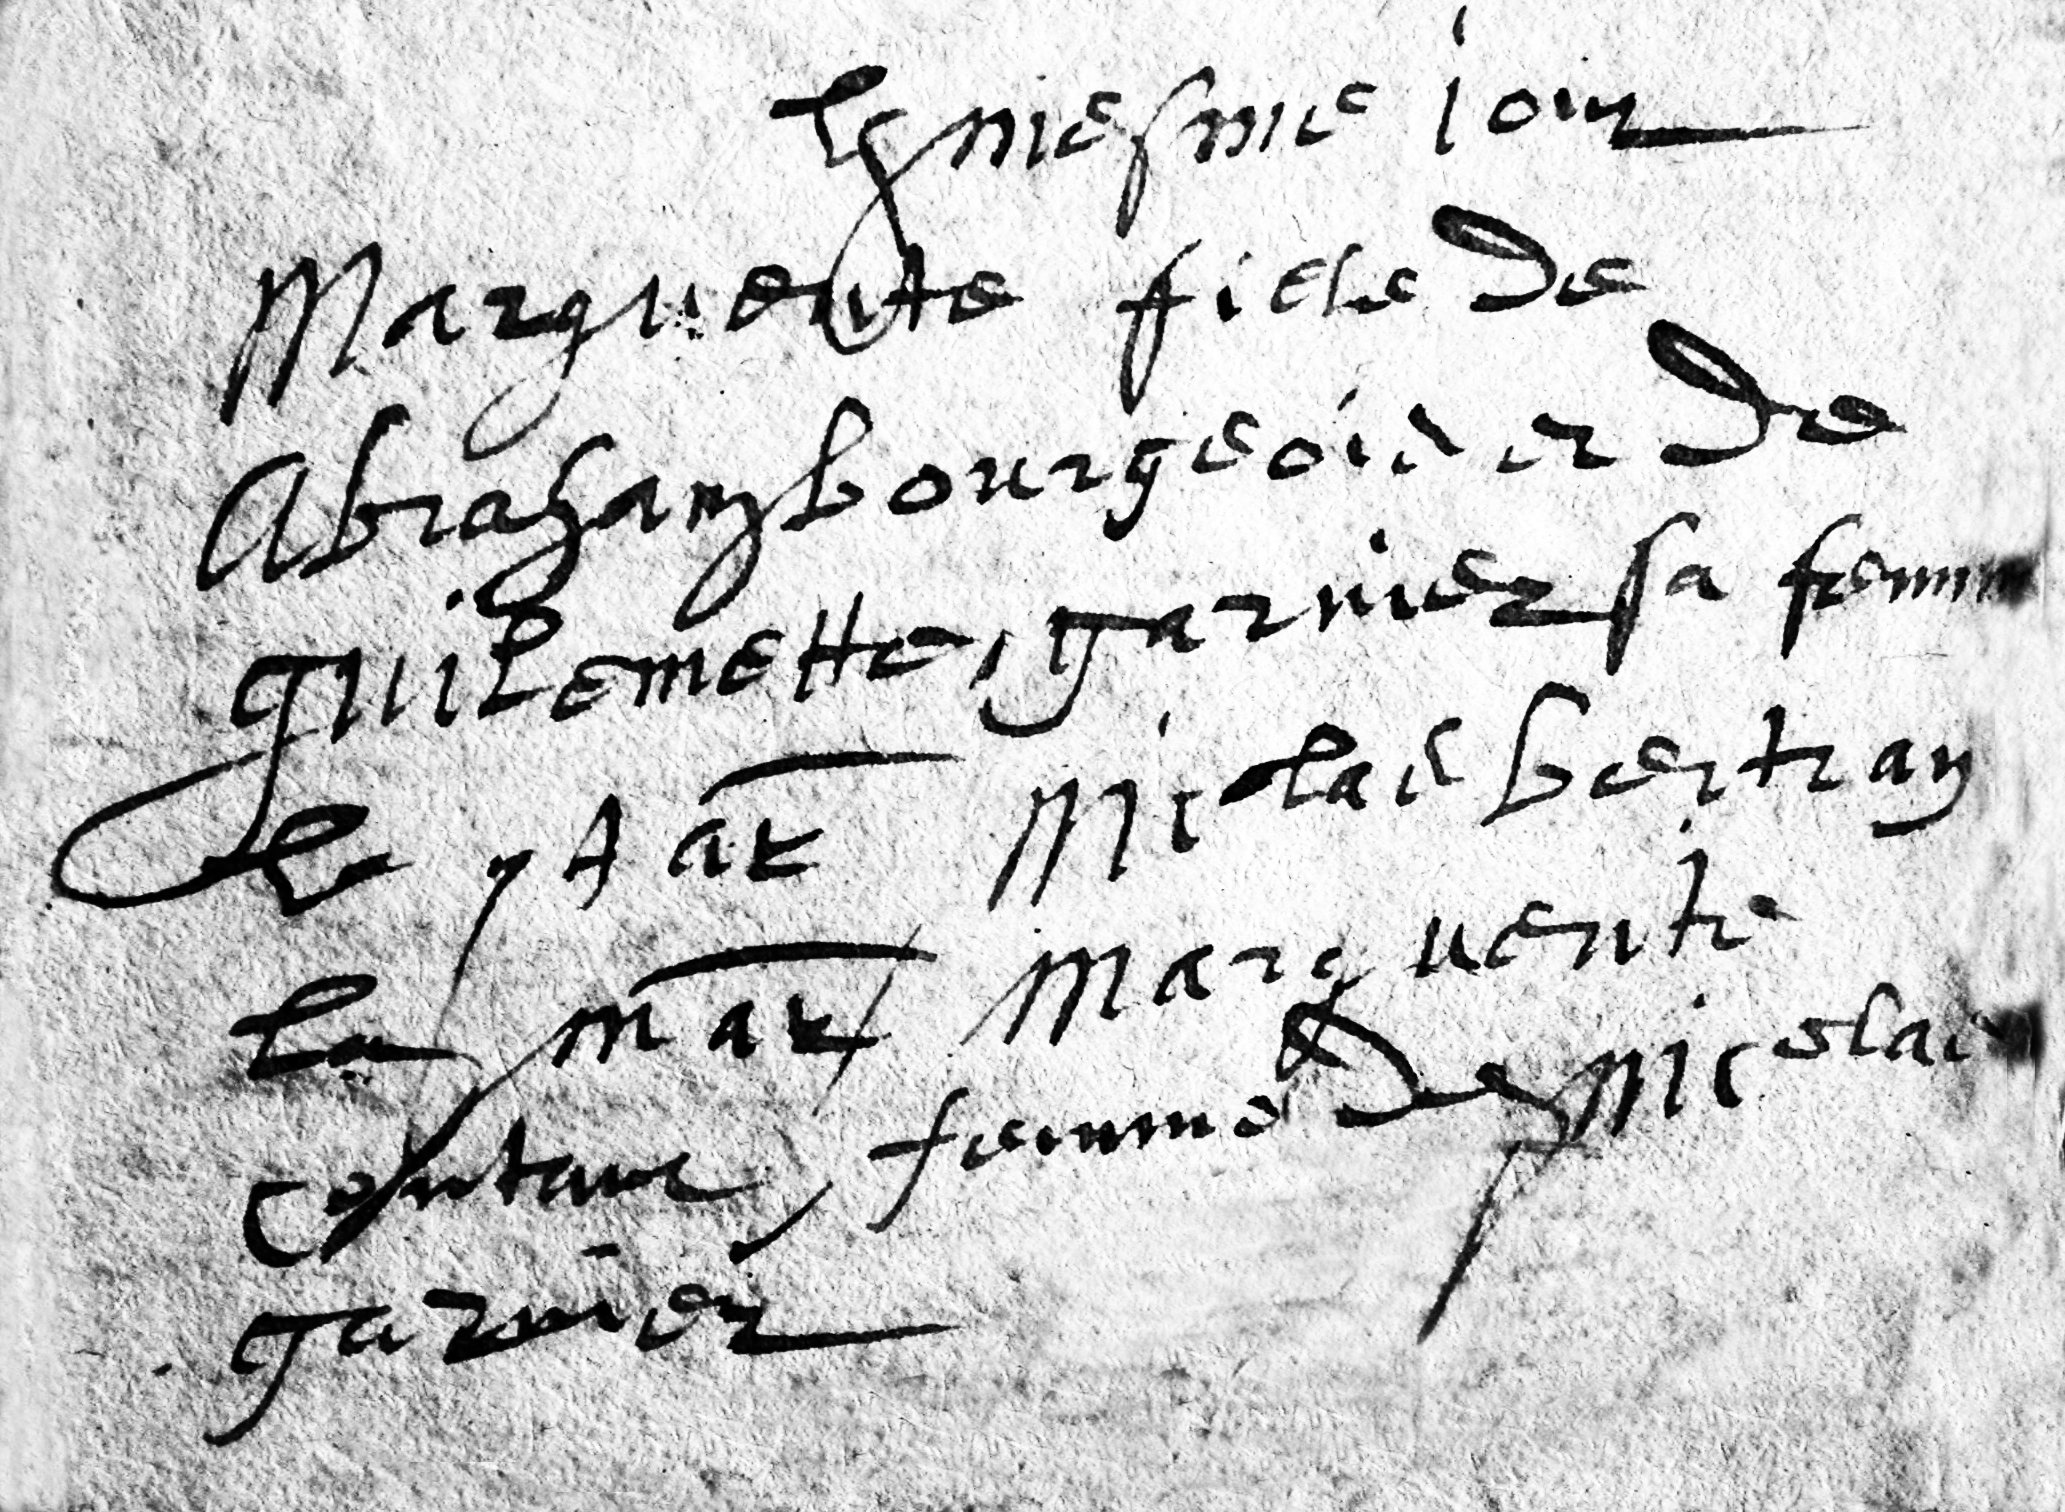 Le mesme iour
Marguerite fielle de
Abraham bourgeois et de
guilemette garnier sa femme
le par Nicolas bertran
la mar Marguerite
femme de Nicolas
garnier